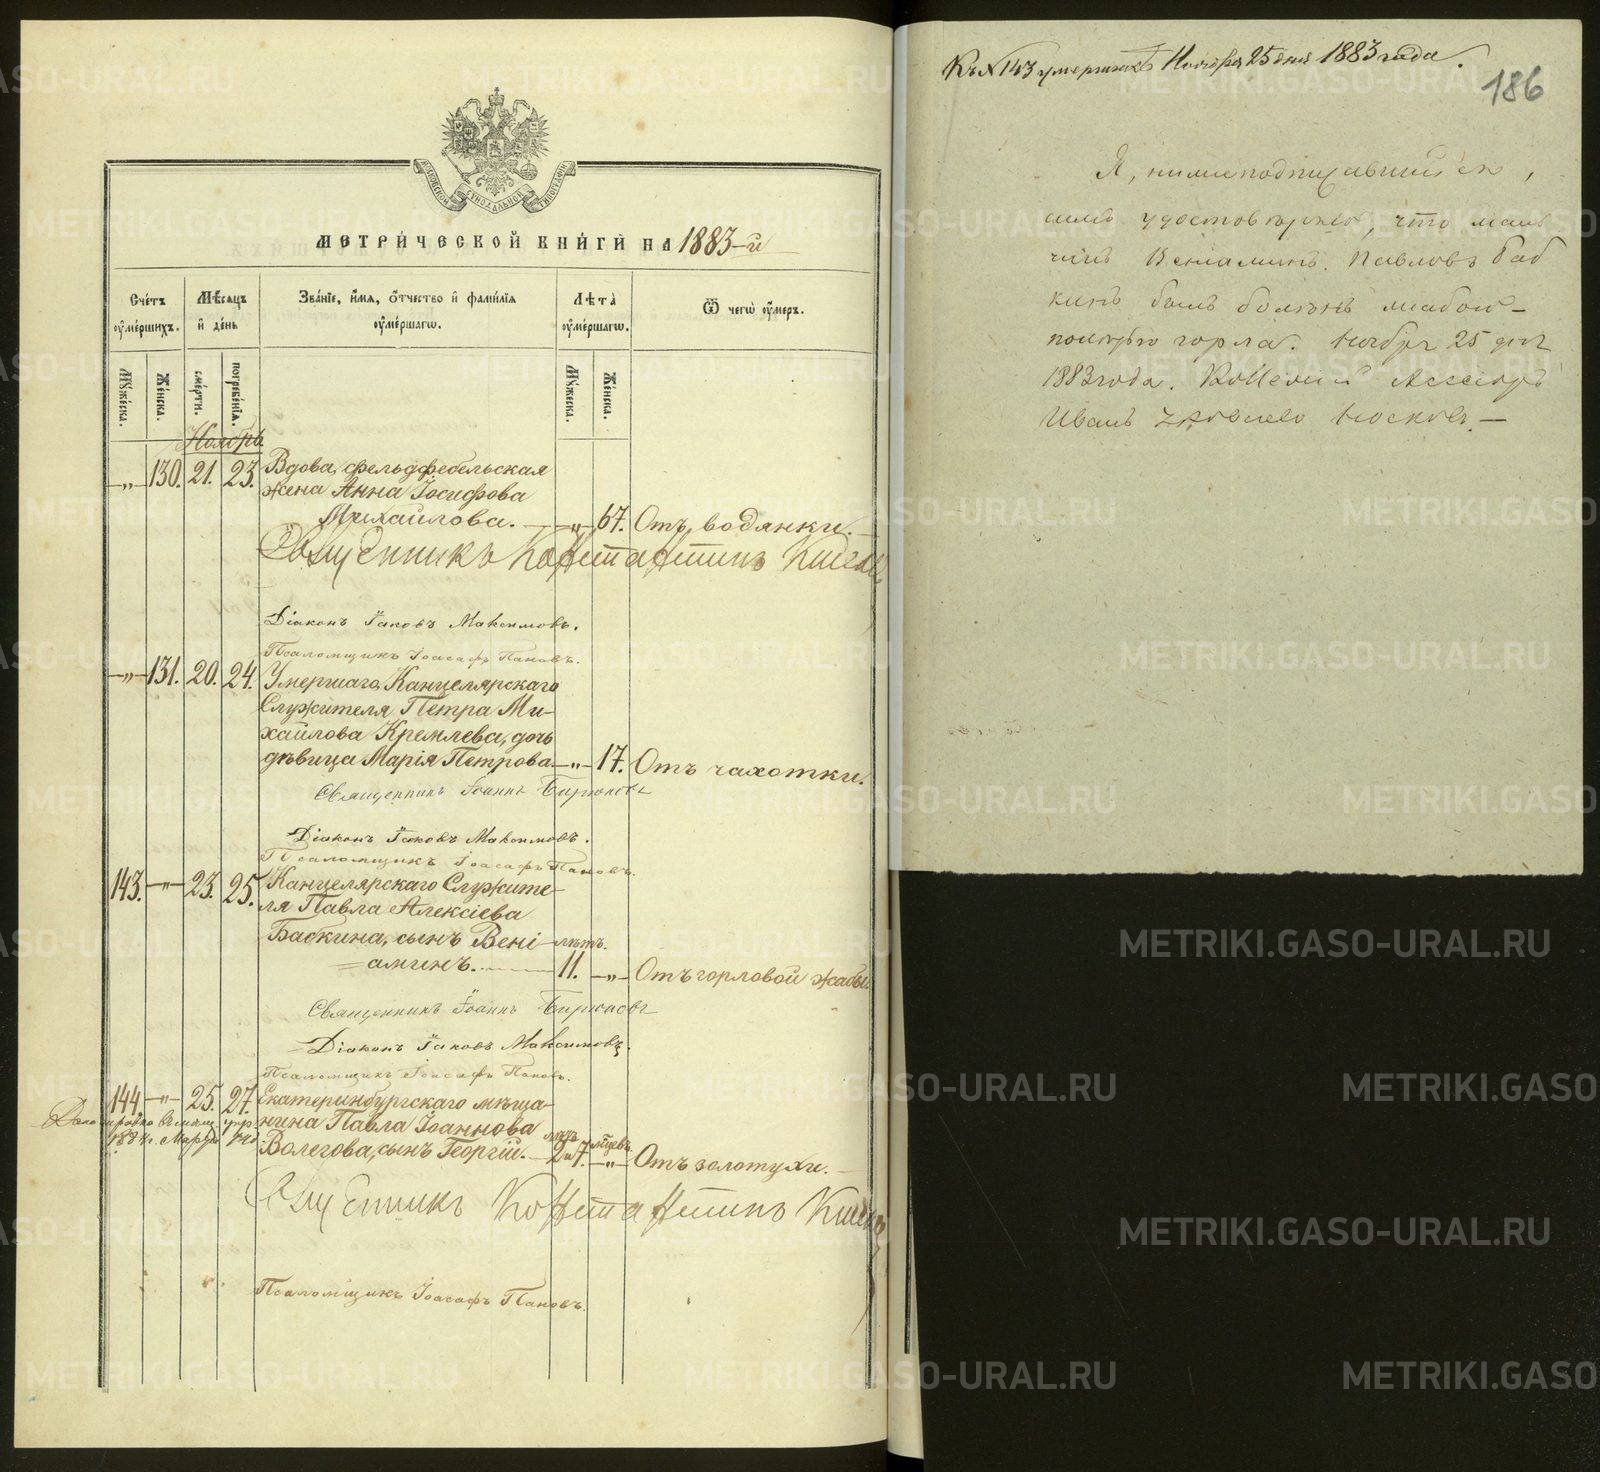 МОСКОВСКОЙ СѴНОДАЛЬНОЙ ТИПОГРАФІИ
МЕТРИ́ЧЕСКОЙ КНИ́ГИ НА 1883-й
Сче́тъ ᲂу҆ме́ршихъ.
Мѣ́сѧцъ и҆ де́нь
Зва́нїе, и҆́мѧ, ѻ҆́тчество и҆ фами́лїѧ ᲂу҆ме́ршагѡ.
Лѣ́та ᲂу҆ме́ршагѡ.
Ѿ чегѡ̀ ᲂу҆́меръ.
Мꙋ́жеска.
Же́нска.
сме́рти.
погребе́нїѧ.
Мꙋ́жеска.
Же́нска.
Ноябрь
-„- 130. 21. 23. Вдова, фельдфебельская
жена Анна Іосифова
Михайлова. -„- 67. Отъ водянки.
Священникъ Константинъ
Діаконъ Іаковъ Максимовъ.
Псаломщикъ Іоасафъ Пановъ.
-„- 131. 20. 24. Умершаго Канцелярскаго
Служителя Петра Ми-
хайлова Кремлева, дочь
дѣвица Марія Петрова -„- 17. Отъ чахотки.
Священникъ Іоаннъ Бирюковъ
Діаконъ Іаковъ Максимовъ.
Псаломщикъ Іоасафъ Пановъ.
143. -„- 23. 25. Канцелярскаго Служите-
ля Павла Алексіева
Бабкина, сынъ Вені- лѣтъ.
аминъ. 11. -„- Отъ горловой жабы.
Священникъ Іоаннъ Бирюковъ
Діаконъ Іаковъ Максимовъ.
Псаломщикъ Іоасафъ Пановъ.
144. -„- 25. 27. Екатеринбургскаго мѣща-
нина Павла Іоаннова
Волегова, сынъ Георгій. лѣтъ 2 и 7. мцевъ -„- Отъ золотухи.
Священникъ Константинъ
Псаломщикъ Іоасафъ Пановъ.
Къ № 143 умершихъ Ноября 25 дня 1883 года.
186
Я, нижеподписавшийся,
симъ удостовѣряю, что маль
чикъ Веніаминъ Павловъ Баб
кинъ былъ боленъ жабой -
горла. Ноября 25 дня
1883 года. Коллежскій Ассесоръ
Иванъ Носковъ. -
METRIKI.GASO-URAL.RU